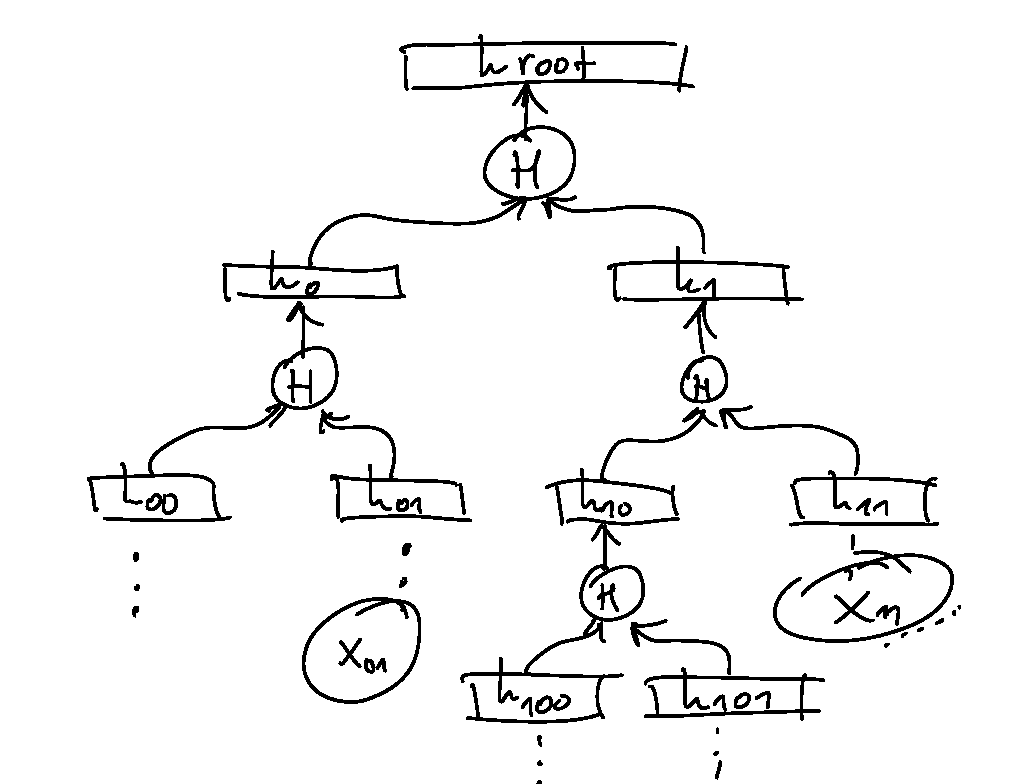 hroot
H
h0 h1
H H
h00 h01 h10 h11
H
X01 X11
h100 h101